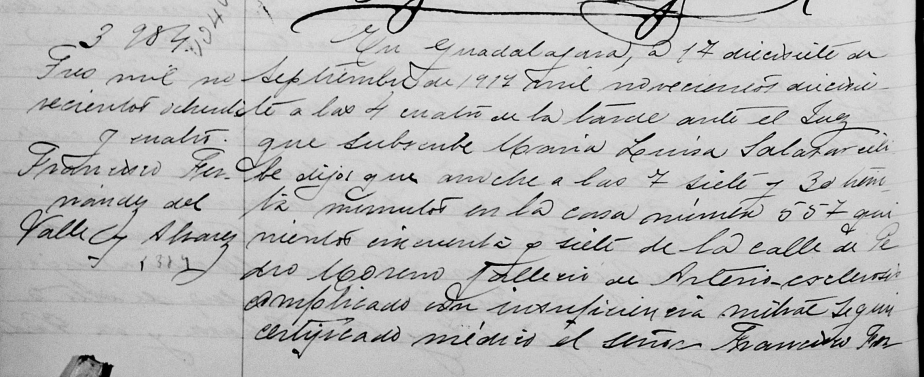 3 984.
Tres mil no
vecientos ochenta
y cuatro.
Francisco Fer-
nández del
Valle y Alvarez
En Guadalajara, a 17 diecisiete de
Septiembre de 1917 mil novecientos diecisie-
te a las 4 cuatro de la tarde ante el Juez
que subscribe Maria Luisa Salazar céli
be dijo: que anoche a las 7 siete y 30 trein
ta minutos en la casa número 557 qui
nientos cincuenta y siete de la calle de Pe
dro Moreno falleció de Arterio-esclerosis
complicado con insuficiencia mitral según
certificado médico el señor Francisco Fer